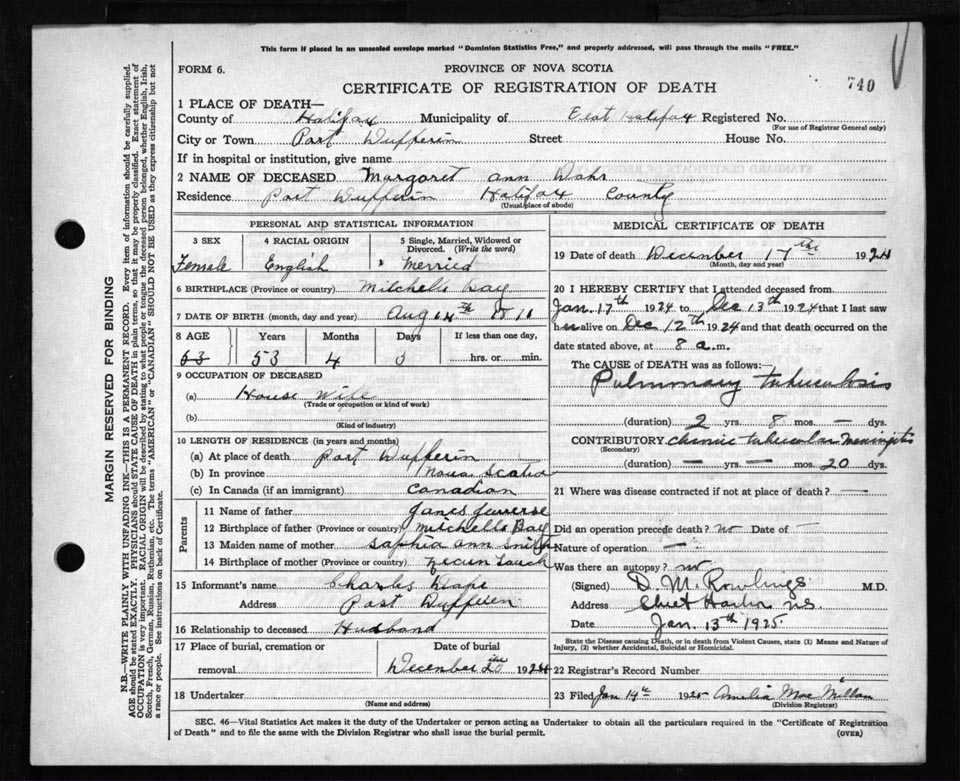 This form if placed in an unsealed envelope marked "Dominion Statistics Free," and properly addressed, will pass through the mails "FREE."
FORM 6.
PROVINCE OF NOVA SCOTIA
740
CERTIFICATE OF REGISTRATION OF DEATH
1 PLACE OF DEATH—
County of Halifax Municipality of East Halifax Registered No.
(For use of Registrar General only)
City or Town Port Dufferin Street House No.
If in hospital or institution, give name
2 NAME OF DECEASED Margaret ann
Residence Port Dufferin Halifax County
(Usual place of abode)
PERSONAL AND STATISTICAL INFORMATION
3 SEX 4 RACIAL ORIGIN 5 Single, Married, Widowed or Divorced. (Write the word)
Female English Merried
6 BIRTHPLACE (Province or country) Mitchells Bay
7 DATE OF BIRTH (month, day and year) Aug
8 AGE Years Months Days If less than one day,
63 53 4 hrs. or min.
9 OCCUPATION OF DECEASED
(a) House Wife
(Trade or occupation or kind of work)
(b)
(Kind of industry)
10 LENGTH OF RESIDENCE (in years and months)
(a) At place of death Port Dufferin
(b) In province Nova Scatia
(c) In Canada (if an immigrant) Canadian
Parents
11 Name of father
12 Birthplace of father (Province or country) Mitchells Bay
13 Maiden name of mother Saphia ann Smith
14 Birthplace of mother (Province or country)
15 Informant's name Charles
Address Port Dufferin
16 Relationship to deceased Husband
17 Place of burial, cremation or removal
Date of burial
December 20 the 1924
18 Undertaker
(Name and address)
MEDICAL CERTIFICATE OF DEATH
19 Date of death December 17 the 1924
(Month, day and year)
20 I HEREBY CERTIFY that I attended deceased from
Jan. 17th 1924 to Dec 13th 1924 that I last saw
her alive on Dec 12th 1924 and that death occurred on the
date stated above, at 8 a.m.
The CAUSE OF DEATH was as follows:—
Pulmonary tuberculosis
(duration) 2 yrs. 8 mos. — dys.
CONTRIBUTORY chronic tubercular meningitis
(Secondary)
(duration) — yrs. — mos. 20 dys.
21 Where was disease contracted if not at place of death? —
Did an operation precede death? no Date of —
Nature of operation —
Was there an autopsy? no
(Signed) D. M. Rowlings M.D.
Address Sheet Harbor N.S.
Date Jan. 13th 1925
State the Disease causing Death, or in death from Violent Causes, state (1) Means and Nature of Injury, (2) whether Accidental, Suicidal or Homicidal.
22 Registrar's Record Number
23 Filed Jan 14th 1925 Amelia Mac Millan
(Division Registrar)
SEC. 46—Vital Statistics Act makes it the duty of the Undertaker or person acting as Undertaker to obtain all the particulars required in the "Certificate of Registration
of Death" and to file the same with the Division Registrar who shall issue the burial permit.
(OVER)
MARGIN RESERVED FOR BINDING
N.B.—WRITE PLAINLY WITH UNFADING INK—THIS IS A PERMANENT RECORD. Every item of information should be carefully supplied.
AGE should be stated EXACTLY. PHYSICIANS should STATE CAUSE OF DEATH in plain terms, so that it may be properly classified. Exact statement of
OCCUPATION is very important. RACIAL ORIGIN will be described by stating to what people or tongue the deceased person belonged, whether English, Irish,
Scotch, French, German, Russian, Ruthenian, etc. The terms "AMERICAN" or "CANADIAN" SHOULD NOT BE USED as they express citizenship but not
a race or people. See instructions on back of Certificate.